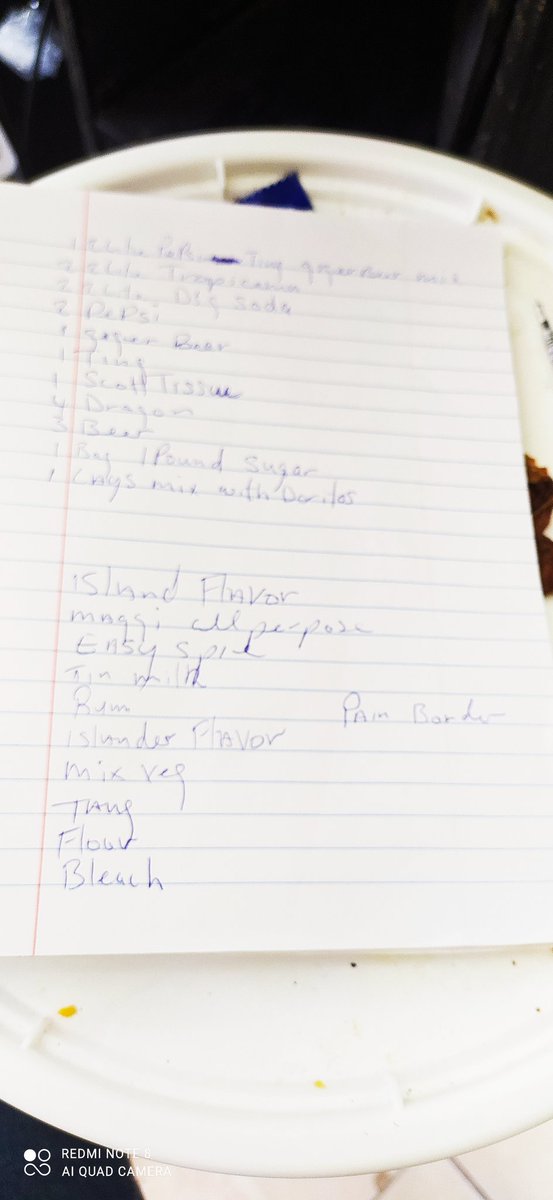 1 2 Lite Pepsi Ting mix
2 2 Lite
2 2 Lite D&G Soda
2 PePsi
1 Beer
1 Ting
1 Scott Tissue
4 Dragon
3 Beer
1 Bag 1 Pound Sugar
1 LAYS mix with Doritos
island Flavor
maggi all perpose
EASY spice
Tin milk
Rum
PAin Border
islander Flavor
mix veg
TANG
Flour
Bleach
REDMI NOTE 8
AI QUAD CAMERA